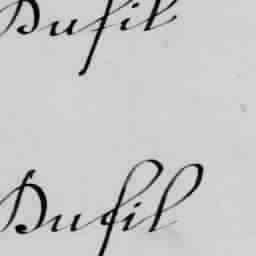 Dufil
Dufil